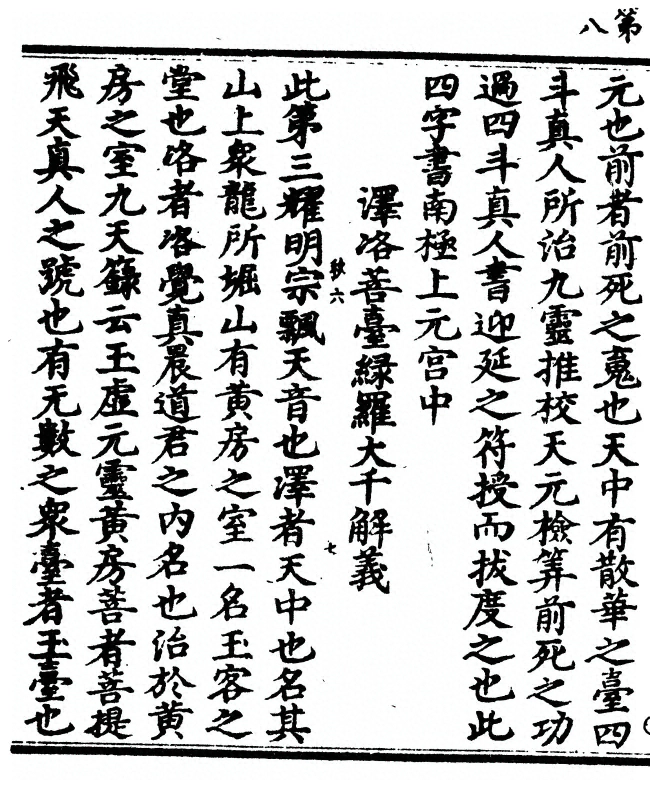 第八
元也前者前死之䰟也天中有散華之臺四
斗真人所治九靈推校天元檢筭前死之功
過四斗真人書迎延之符授而拔度之也此
四字書南極上元宫中
澤洛菩臺緑羅大千解義
此第三耀明宗飄天音也澤者天中也名其
山上衆龍所堀山有黄房之室一名玉客之
堂也洛者洛覺真晨道君之内名也治於黄
房之室九天籙云玉虚元靈黄房菩者菩提
飛天真人之號也有无數之衆臺者玉臺也
敉六
七